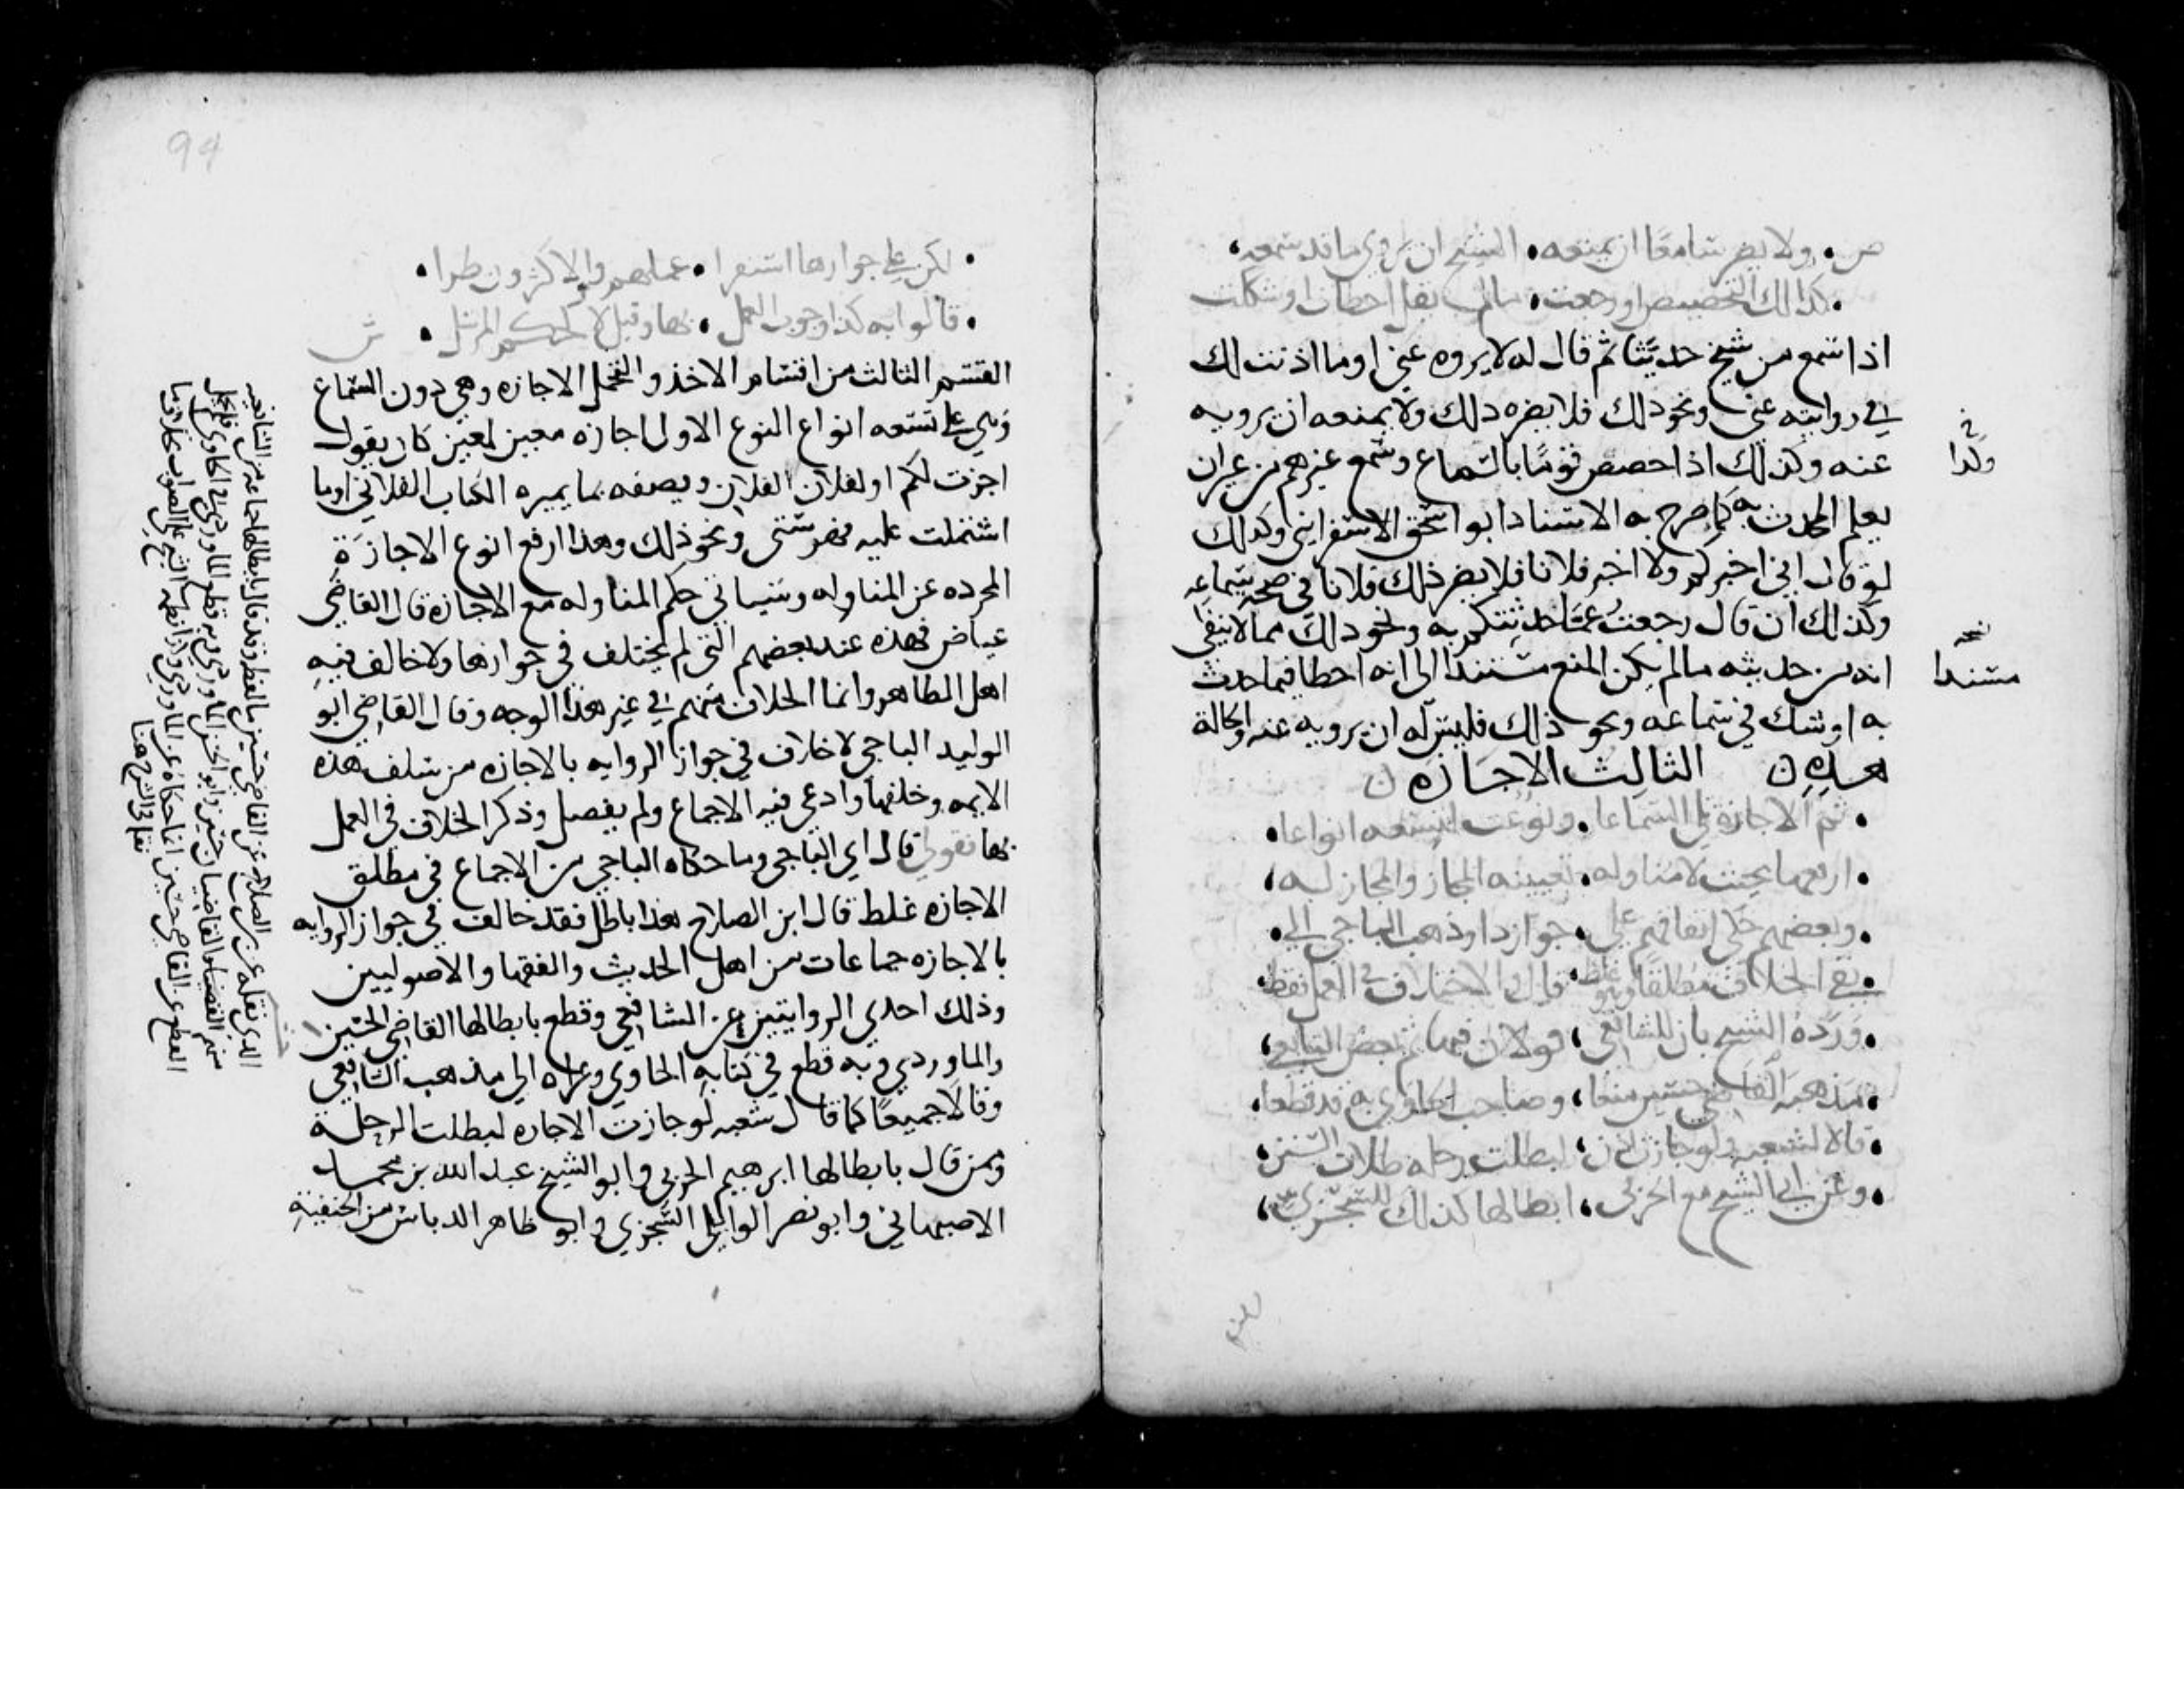 ص ولا يضر سامعا ان يمنعه الشيخ ان يروي ما قد سمعه
كذلك التخصيص او رجعت ما لم يقل اخطات او شككت
اذا سمع من شيخ حديثا ثم قال له لا يروه عني او ما اذنت لك
في روايته عني ونحو ذلك فلا يضره ذلك ولا يمنعه ان يرويه
عنه وكذلك اذا خصص قوما بالسماع وسمع غيرهم من غير ان
وكذا
يعلم المحدث به كما صرح به الاستاذ ابو اسحق الاسفرايني وكذلك
لو قال اني اخبركم ولا اخبر فلانا فلا يضر ذلك فلانا في صحة سماعه
وكذلك ان قال رجعت عما حدثتكم به ونحو ذلك مما لا ينفي
انه من حديثه ما لم يكن المنع مستندا الى انه اخطا فيما حدث
نسخه
مستندا
به او شك في سماعه ونحو ذلك فليس له ان يرويه عنه والحالة
هذه ن الثالث الاجازه ن
ثم الاجازة تلي السماعا ونوعت لتسعه انواعا
ارفعها بحيث لا مناوله تعيينه المجاز والمجاز له
وبعضهم حكى اتفاقهم على جواز ذا وذهب الباجي الى
نفي الخلاف مطلقا وهو غلط قال والاختلاف في العمل فقط
ورده الشيخ بان للشافعي قولان فيها ثم بعض التابعي
مذهبه القاضي حسين منعا وصاحب الحاوي به قد قطعا
قالا لشعبه ولو جازت اذن لبطلت رحله طلاب السنن
وعن ابي الشيخ مع الحربي ابطالها كذلك للسجزي
لكن على جوازها استقرا عملهم والاكثرون طرا
قالوا به كذا وجوب العمل بها وقيل لا كحكم المرسل ش
القسم الثالث من اقسام الاخذ والتحمل الاجازه وهي دون السماع
وهي على تسعه انواع النوع الاول اجازه معين لمعين كان يقول
اجزت لكم او لفلان الفلاني ويصفه بما يميزه الكتاب الفلاني او ما
اشتملت عليه فهرستي ونحو ذلك وهذا ارفع انوع الاجازة
المجرده عن المناوله وسياتي حكم المناوله مع الاجازة قال القاضي
عياض فهذه عند بعضهم التي لم يختلف في جوازها ولا خالف فيه
اهل الظاهر وانما الخلاف منهم في غير هذا الوجه وقال القاضي ابو
الوليد الباجي لا خلاف في جواز الروايه بالاجازه من سلف هذه
الايمه وخلفها وادعى فيه الاجماع ولم يفصل وذكر الخلاف في العمل
بها فقولي قال اي الباجي وما حكاه الباجي من الاجماع في مطلق
الاجازه غلط قال ابن الصلاح هذا باطل فقد خالف في جواز الروايه
بالاجازه جماعات من اهل الحديث والفقها والاصوليين
وذلك احدي الروايتين عن الشافعي وقطع بابطالها القاضي الحسين
والماوردي وبه قطع في كتابه الحاوي وعزاه الي مذهب الشافعي
وقالا جميعا كما قال شعبه لو جازت الاجازه لبطلت الرحلة
وممن قال بابطالها ابرهيم الحربي وابو الشيخ عبد الله بن محمد
الاصبهاني وابو نصر الوايلي السجزي وابو طاهر الدباس من الحنفيه
94